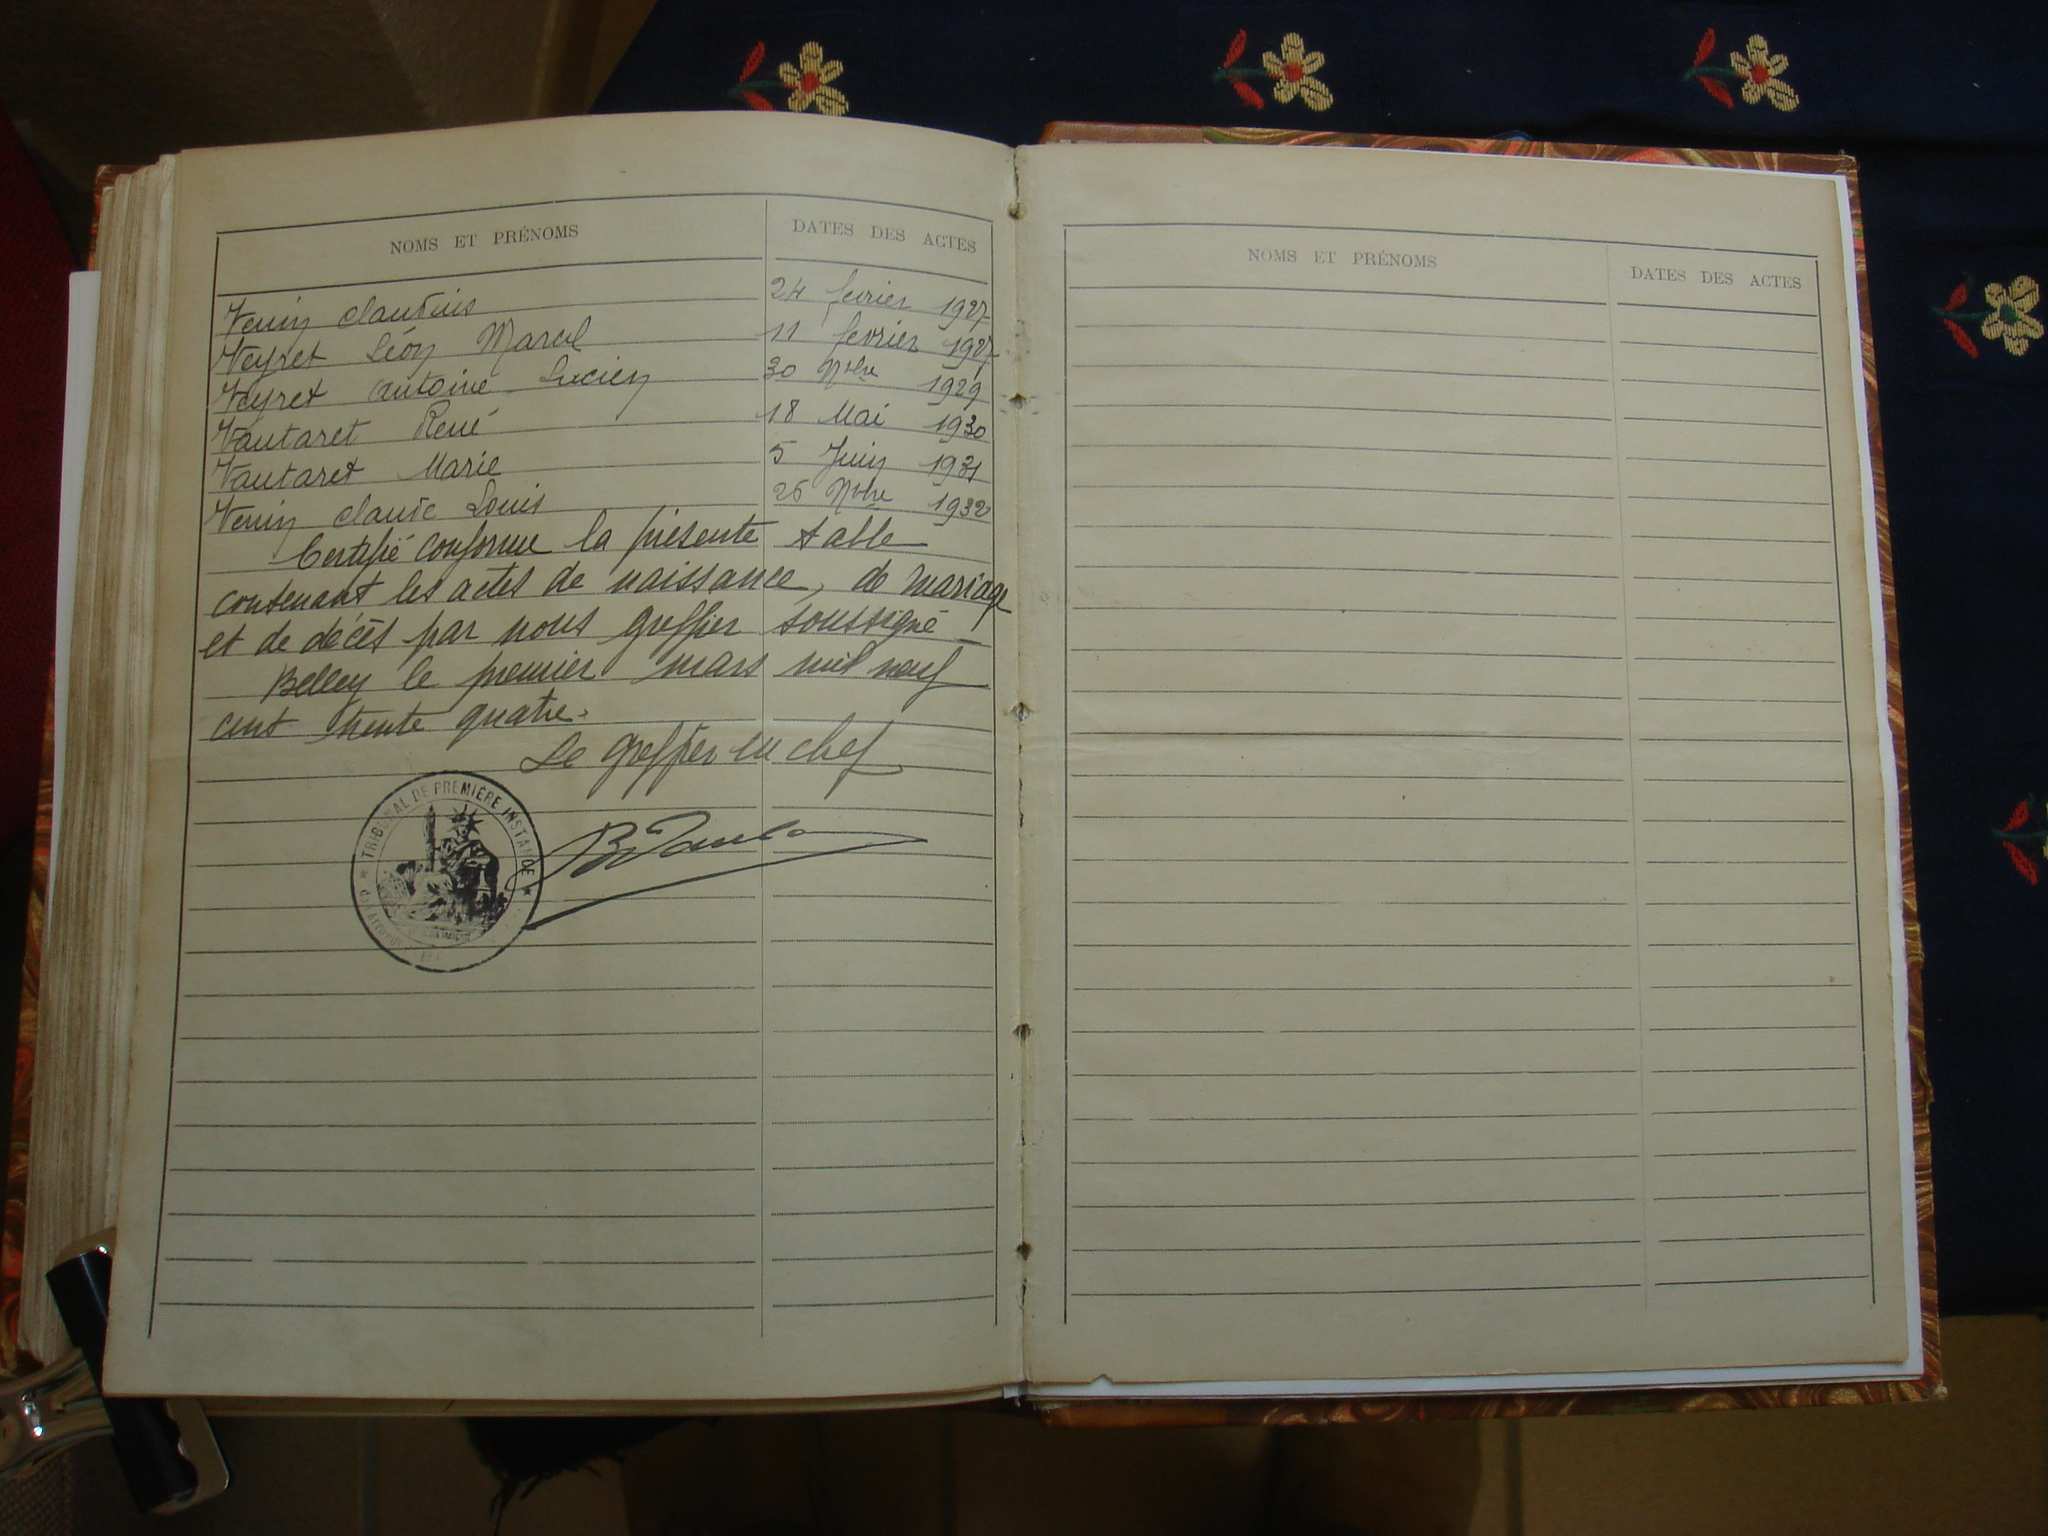 NOMS ET PRÉNOMS DATES DES ACTES
Venin Claudius 24 fevrier 1927
Veyret Léon Marcel 11 fevrier 1927
Veyret Antoine Lucien 30 Nbre 1929
Vautaret René 18 Mai 1930
Vautaret Marie 5 Juin 1931
Venin Claude Louis 26 Nbre 1932
Certifié conforme la présente table
contenant les actes de naissance, de mariage
et de décès par nous greffier soussigné
Belley le premier mars mil neuf
cent trente quatre.
Le greffier en chef
TRIBUNAL DE PREMIÈRE INSTANCE
NOMS ET PRÉNOMS DATES DES ACTES